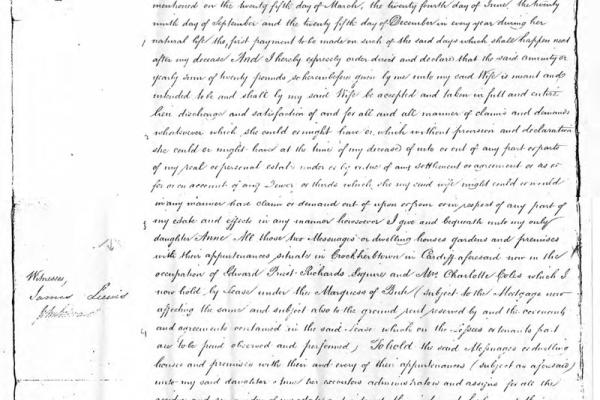 mentioned on the twenty fifth day of March, the twenty fourth day of June, the twenty
ninth day of September and the twenty fifth day of December in every year during her
natural life the first payment to be made on such of the said days which shall happen next
after my decease And I hereby expressly order direct and declare that the said annuity or
yearly sum of twenty pounds so hereinbefore given by me unto my said Wife is meant and
intended to be and shall by my said Wife be accepted and taken in full and entire
lieu discharge and satisfaction of and for all and all manner of claims and demands
whatsoever which she could or might have or which without provision and declaration
she could or might have at the time of my decease of into or out of any part or parts
of my real or personal estate under or by virtue of any settlement or agreement or as or
for or on account of any Dower or thirds which she my said wife might could or would
in any manner have claim or demand out of upon or from or in respect of any part of
my estate and effects in any manner howsoever I give and bequeath unto my only
daughter Anne All those two Messuages or dwelling houses gardens and premises
with their appurtenances situate in Crockherbtown in Cardiff aforesaid now in the
occupation of Edward Priest Richards Esquire and Mrs Charlotte Coles which I
now hold by Lease under the Marquess of Bute (subject to the Mortgage now
affecting the same and subject also to the ground rent reserved by and the covenants
and agreements contained in the said Lease which on the Lessees or tenants part
are to be paid observed and performed) To hold the said Messuages or dwelling
houses and premises with their and every of their appurtenances (subject as aforesaid)
unto my said daughter Anne her executors administrators and assigns for all the
Witnesses,
James Lewis